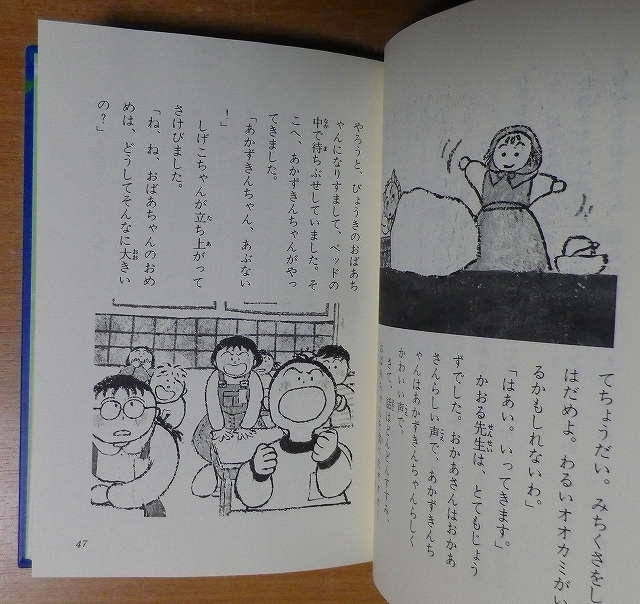 てちょうだい。みちくさをし
はだめよ。わるいオオカミがい
るかもしれないわ。
「はあい。いってきます。」
かおる先生は、とてもじょう
ずでした。おかあさんはおかあ
さんらしい声で、あかずきんち
ゃんはあかずきんちゃんらしく
かわいい声で。
やろうと、びょうきのおばあち
ゃんになりすまして、ベッドの
中で待ちぶせしていました。そ
こへ、あかずきんちゃんがやっ
てきました。
「あかずきんちゃん、あぶない
!」
しげこちゃんが立ち上がって
さけびました。
「ね、ね、おばあちゃんのおめ
めは、どうしてそんなに大きい
の?」
47